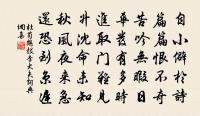 自小僻於詩
篇篇恨不奇
苦吟無暇日
華發有多時
進取門難見
升沈命未知
秋風夜來急
還恐到京遲
杜荀鶴投李大夫詞典
網集